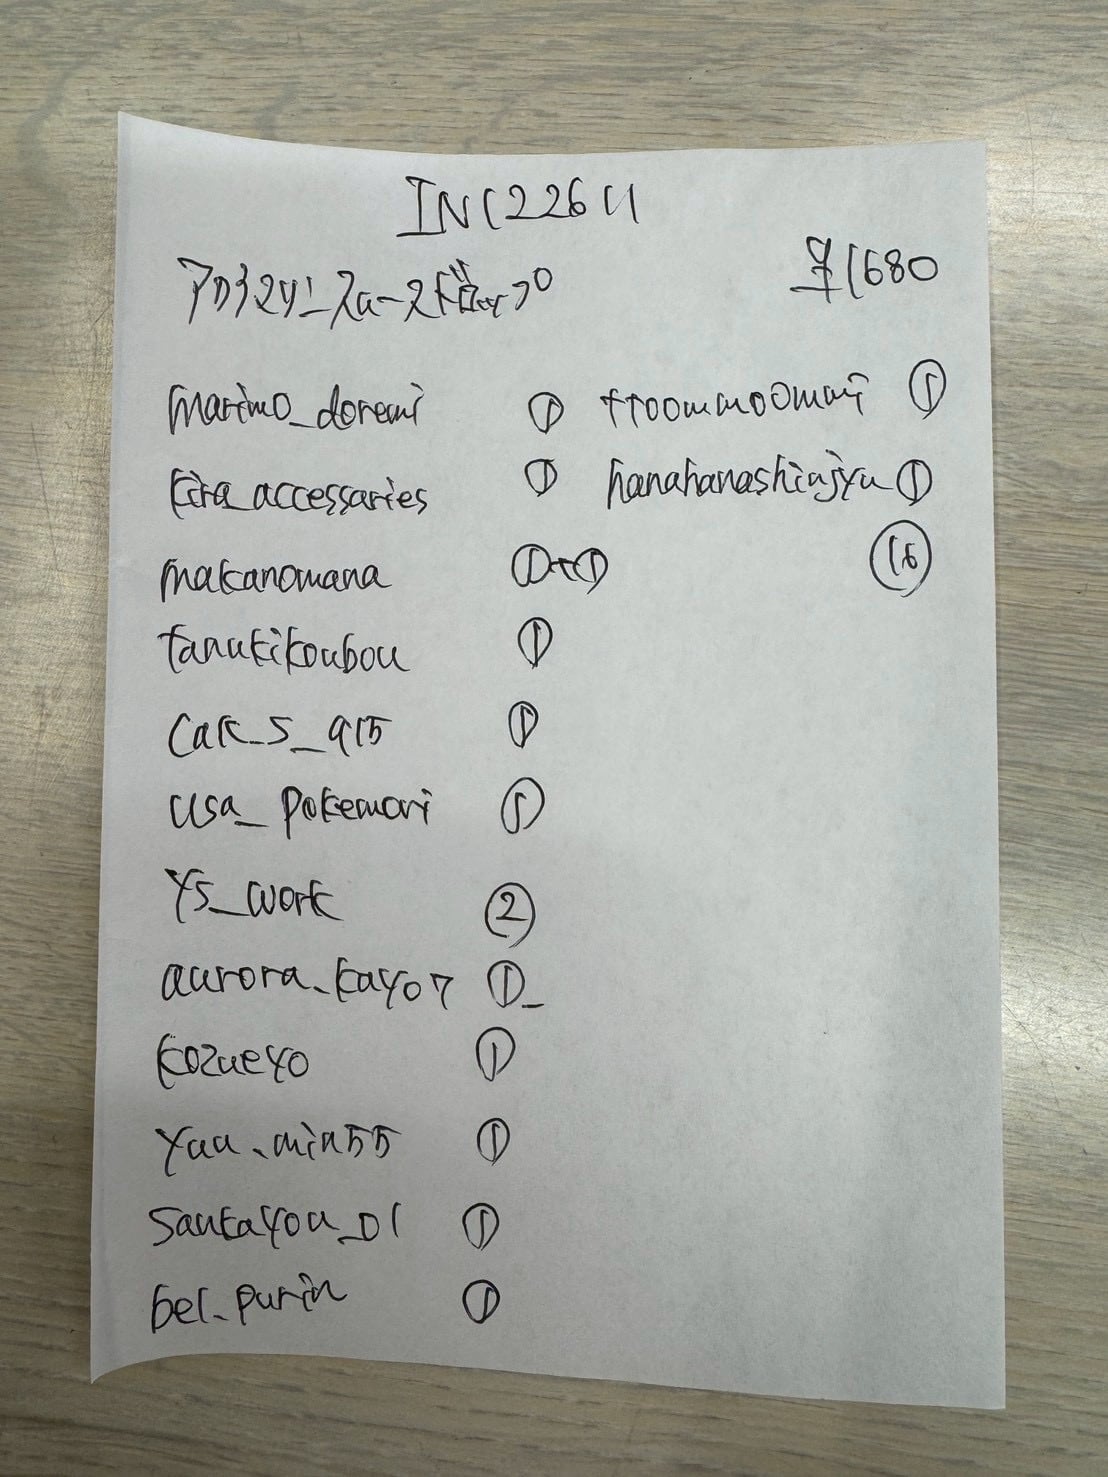 INC22611
¥1680
marimo_doremi ①
kira_accessaries ①
makanomana ①+①
tanukikoubou ①
cak_s_915 ①
usa_pokemori ①
YS_work ②
aurora.kayo7 ①
kozueyo ①
yuu.min55 ①
sankayou_01 ①
bel.purin ①
ttoommoomni ①
hanahanashinjyu ①
⑯